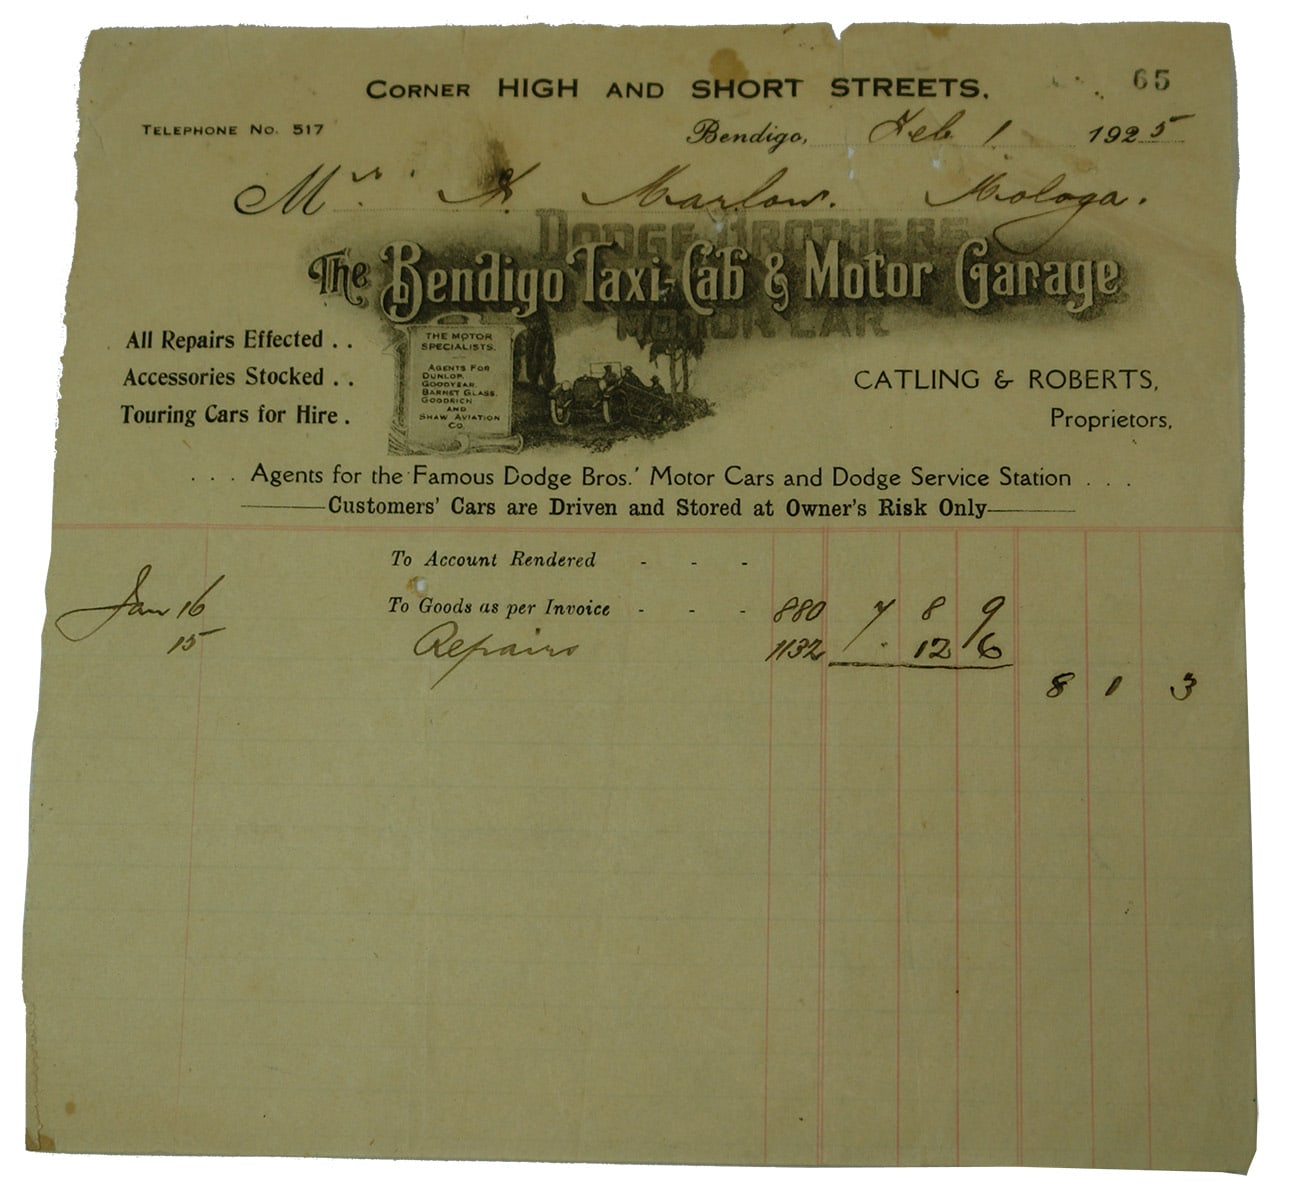 65
CORNER HIGH AND SHORT STREETS.
TELEPHONE NO. 517
Bendigo, Feb 1 1925
Mr. A Marlow. Mologa.
DODGE BROTHERS
The Bendigo Taxi-Cab & Motor Garage
MOTOR CAR
All Repairs Effected . .
Accessories Stocked . .
Touring Cars for Hire .
THE MOTOR
SPECIALISTS.
AGENTS FOR
DUNLOP.
GOODYEAR.
BARNET GLASS.
GOODRICH
AND
SHAW AVIATION
CO.
CATLING & ROBERTS,
Proprietors,
. . . Agents for the Famous Dodge Bros.' Motor Cars and Dodge Service Station . . .
Customers' Cars are Driven and Stored at Owner's Risk Only
To Account Rendered - - -
Jan 16 To Goods as per Invoice - - - 880 7 8 9
15 Repairs 1132 . 12 6
8 1 3